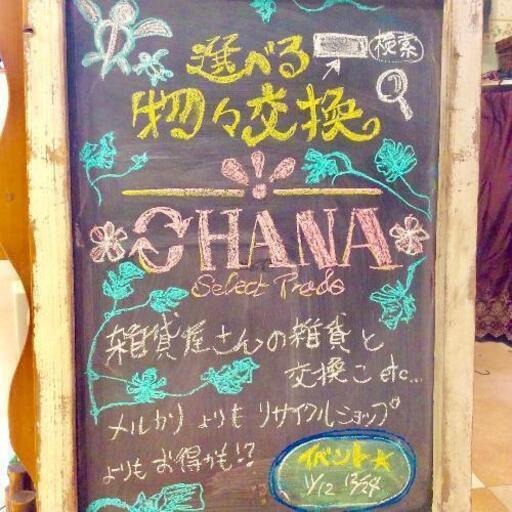 選べる 検索
物々交換
OHANA
Select Trade
雑貨屋さんの雑貨と
交換こ etc...
メルカリよりもリサイクルショップ
よりもお得かも!?
イベント★
11/12 12/24